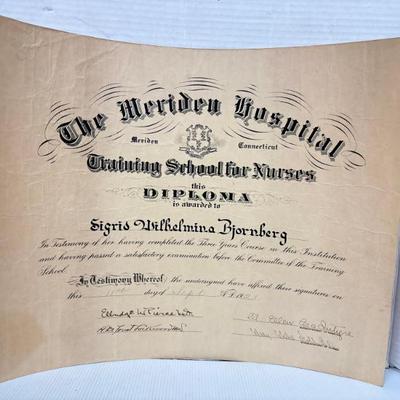 The Meriden Hospital
Meriden Connecticut
Training School for Nurses
this
DIPLOMA
is awarded to
Sigrid Wilhelmina Bjornberg
In Testimony of her having completed the Three Years Course in this Institution
and having passed a satisfactory examination before the Committee of the Training
School.
In Testimony Whereof the undersigned have affixed their signatures on
this day of Sept A.D.